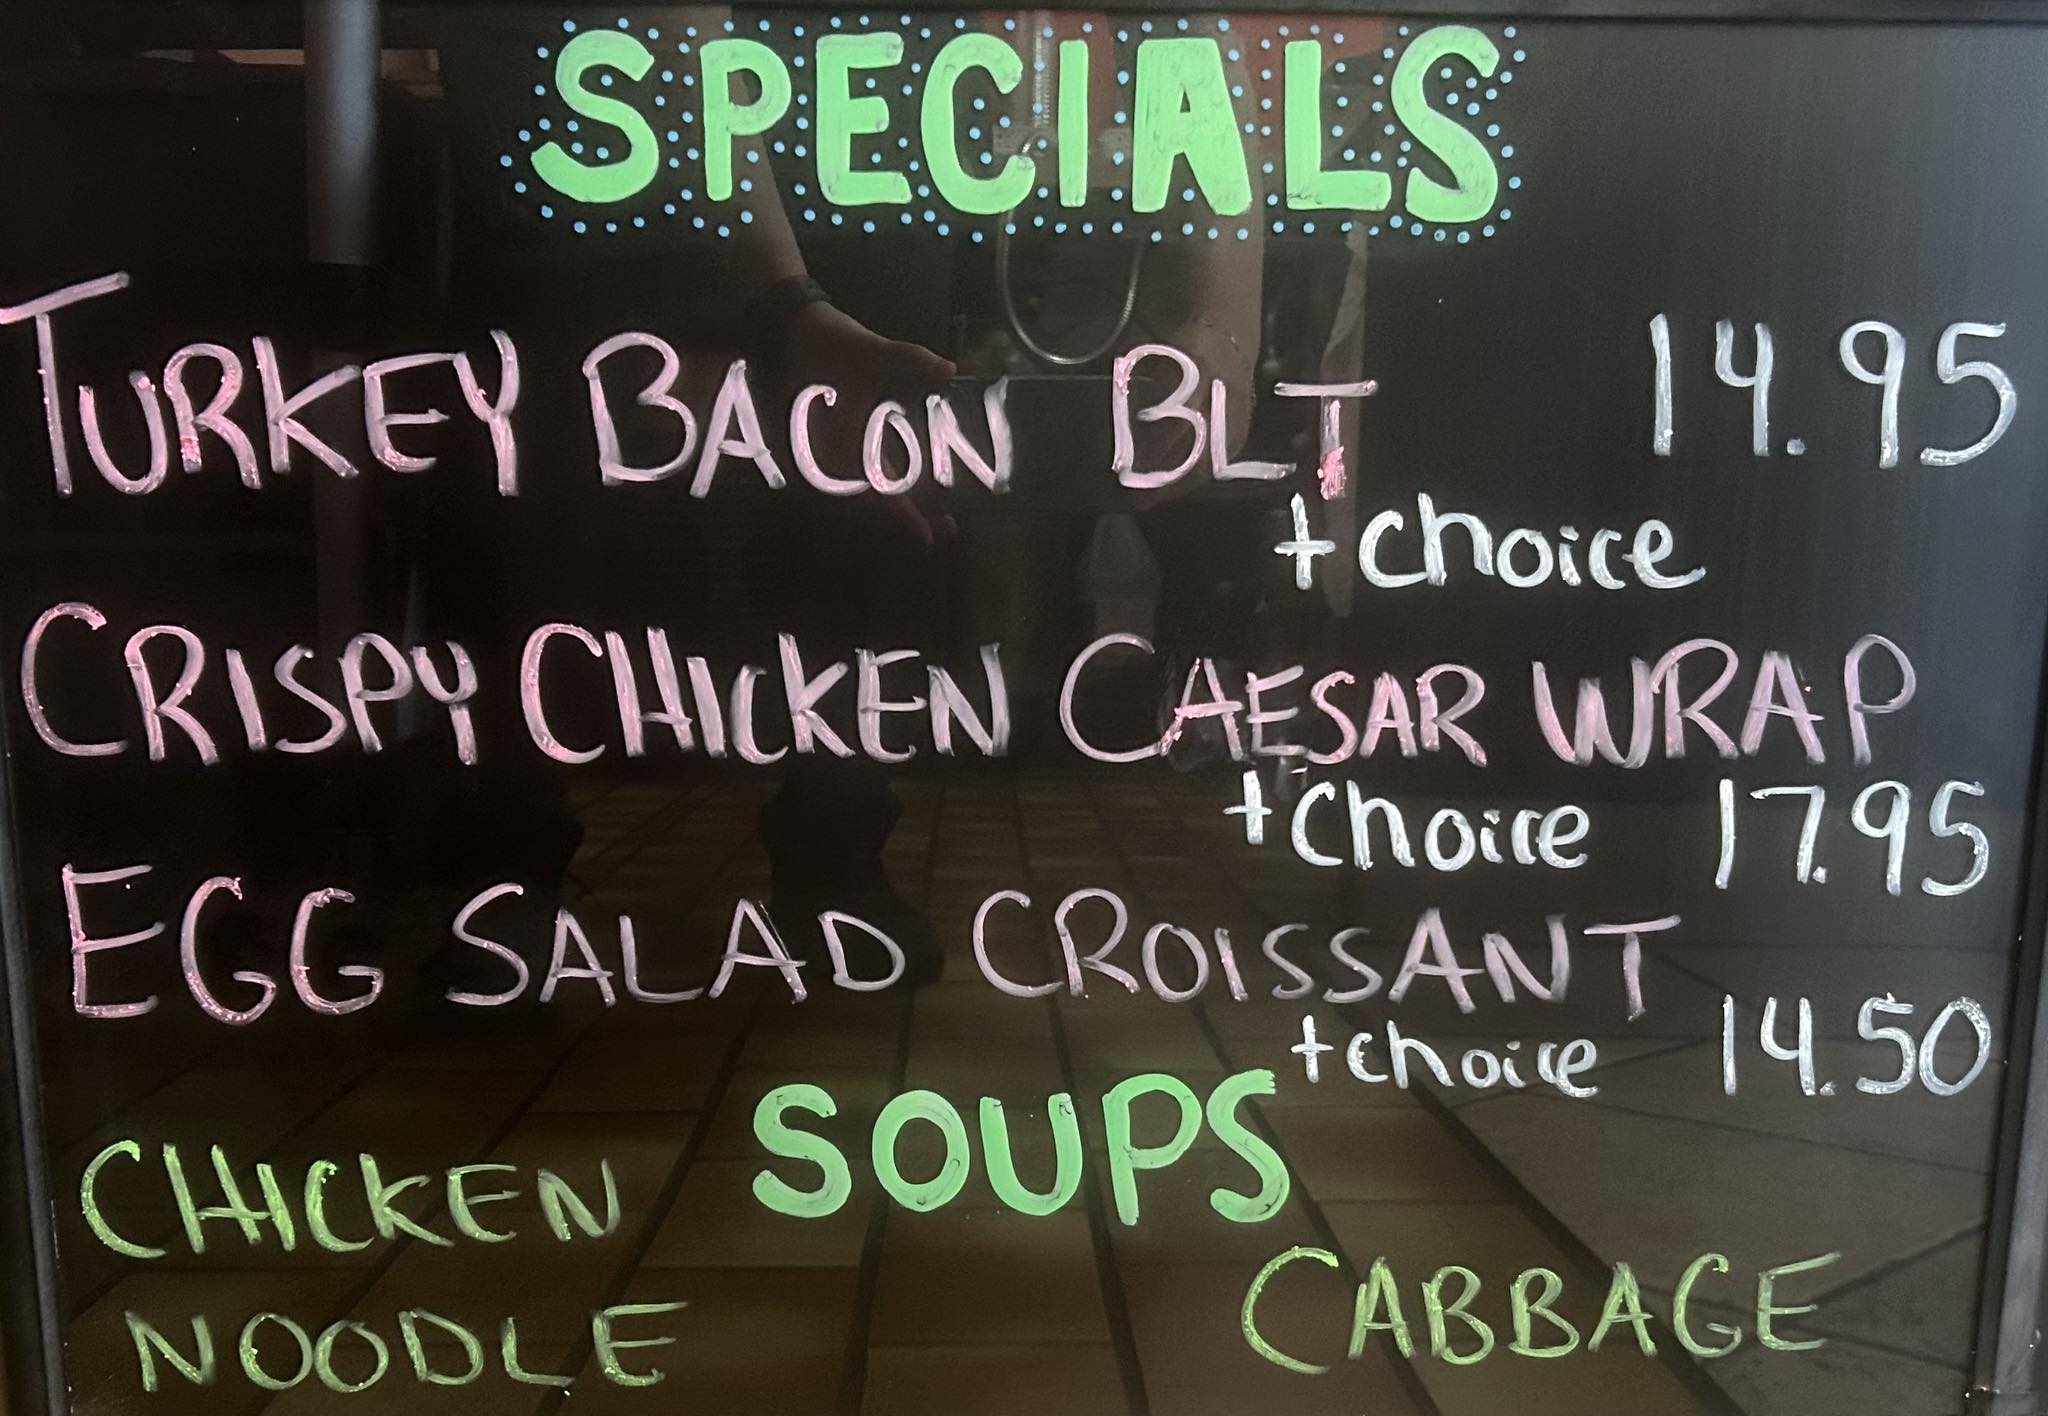 SPECIALS
TURKEY BACON BLT 14.95
+choice
CRISPY CHICKEN CAESAR WRAP
+choice 17.95
EGG SALAD CROISSANT
+choice 14.50
SOUPS
CHICKEN
NOODLE
CABBAGE